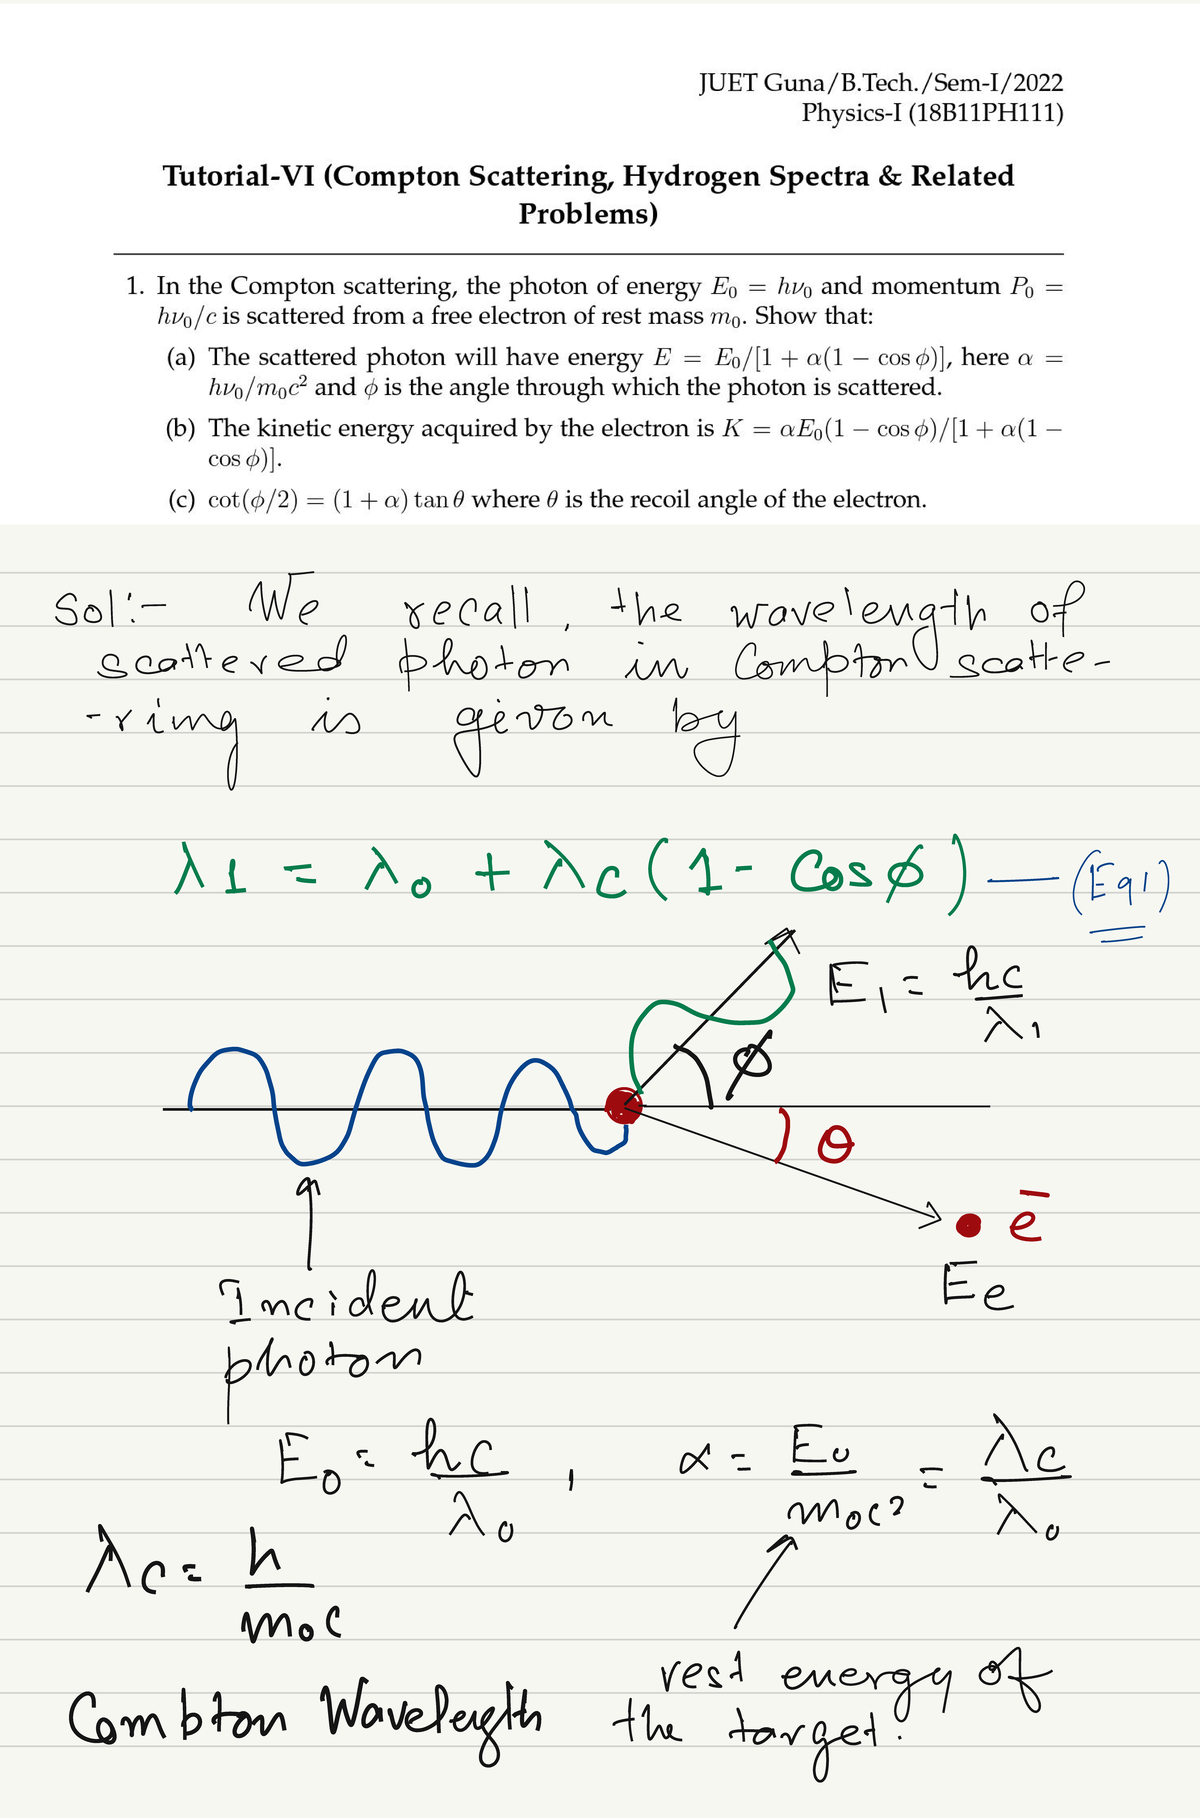 JUET Guna/B.Tech./Sem-I/2022
Physics-I (18B11PH111)
Tutorial-VI (Compton Scattering, Hydrogen Spectra & Related
Problems)
1. In the Compton scattering, the photon of energy E₀ = hν₀ and momentum P₀ =
hν₀/c is scattered from a free electron of rest mass m₀. Show that:
(a) The scattered photon will have energy E = E₀/[1 + α(1 − cos ϕ)], here α =
hν₀/m₀c² and ϕ is the angle through which the photon is scattered.
(b) The kinetic energy acquired by the electron is K = αE₀(1 − cos ϕ)/[1 + α(1 −
cos ϕ)].
(c) cot(ϕ/2) = (1 + α) tan θ where θ is the recoil angle of the electron.
Sol:- We recall, the wavelength of
scattered photon in Compton scatte-
-ring is given by
λ1 = λ₀ + λc (1 - Cosϕ) — (Eq1)
E₁ = hc/λ₁
ϕ
θ
e⁻
Ee
Incident
photon
E₀ = hc/λ₀ , α = E₀/m₀c² = λc/λ₀
λc = h/m₀c
rest energy of
Combton Wavelength the target.